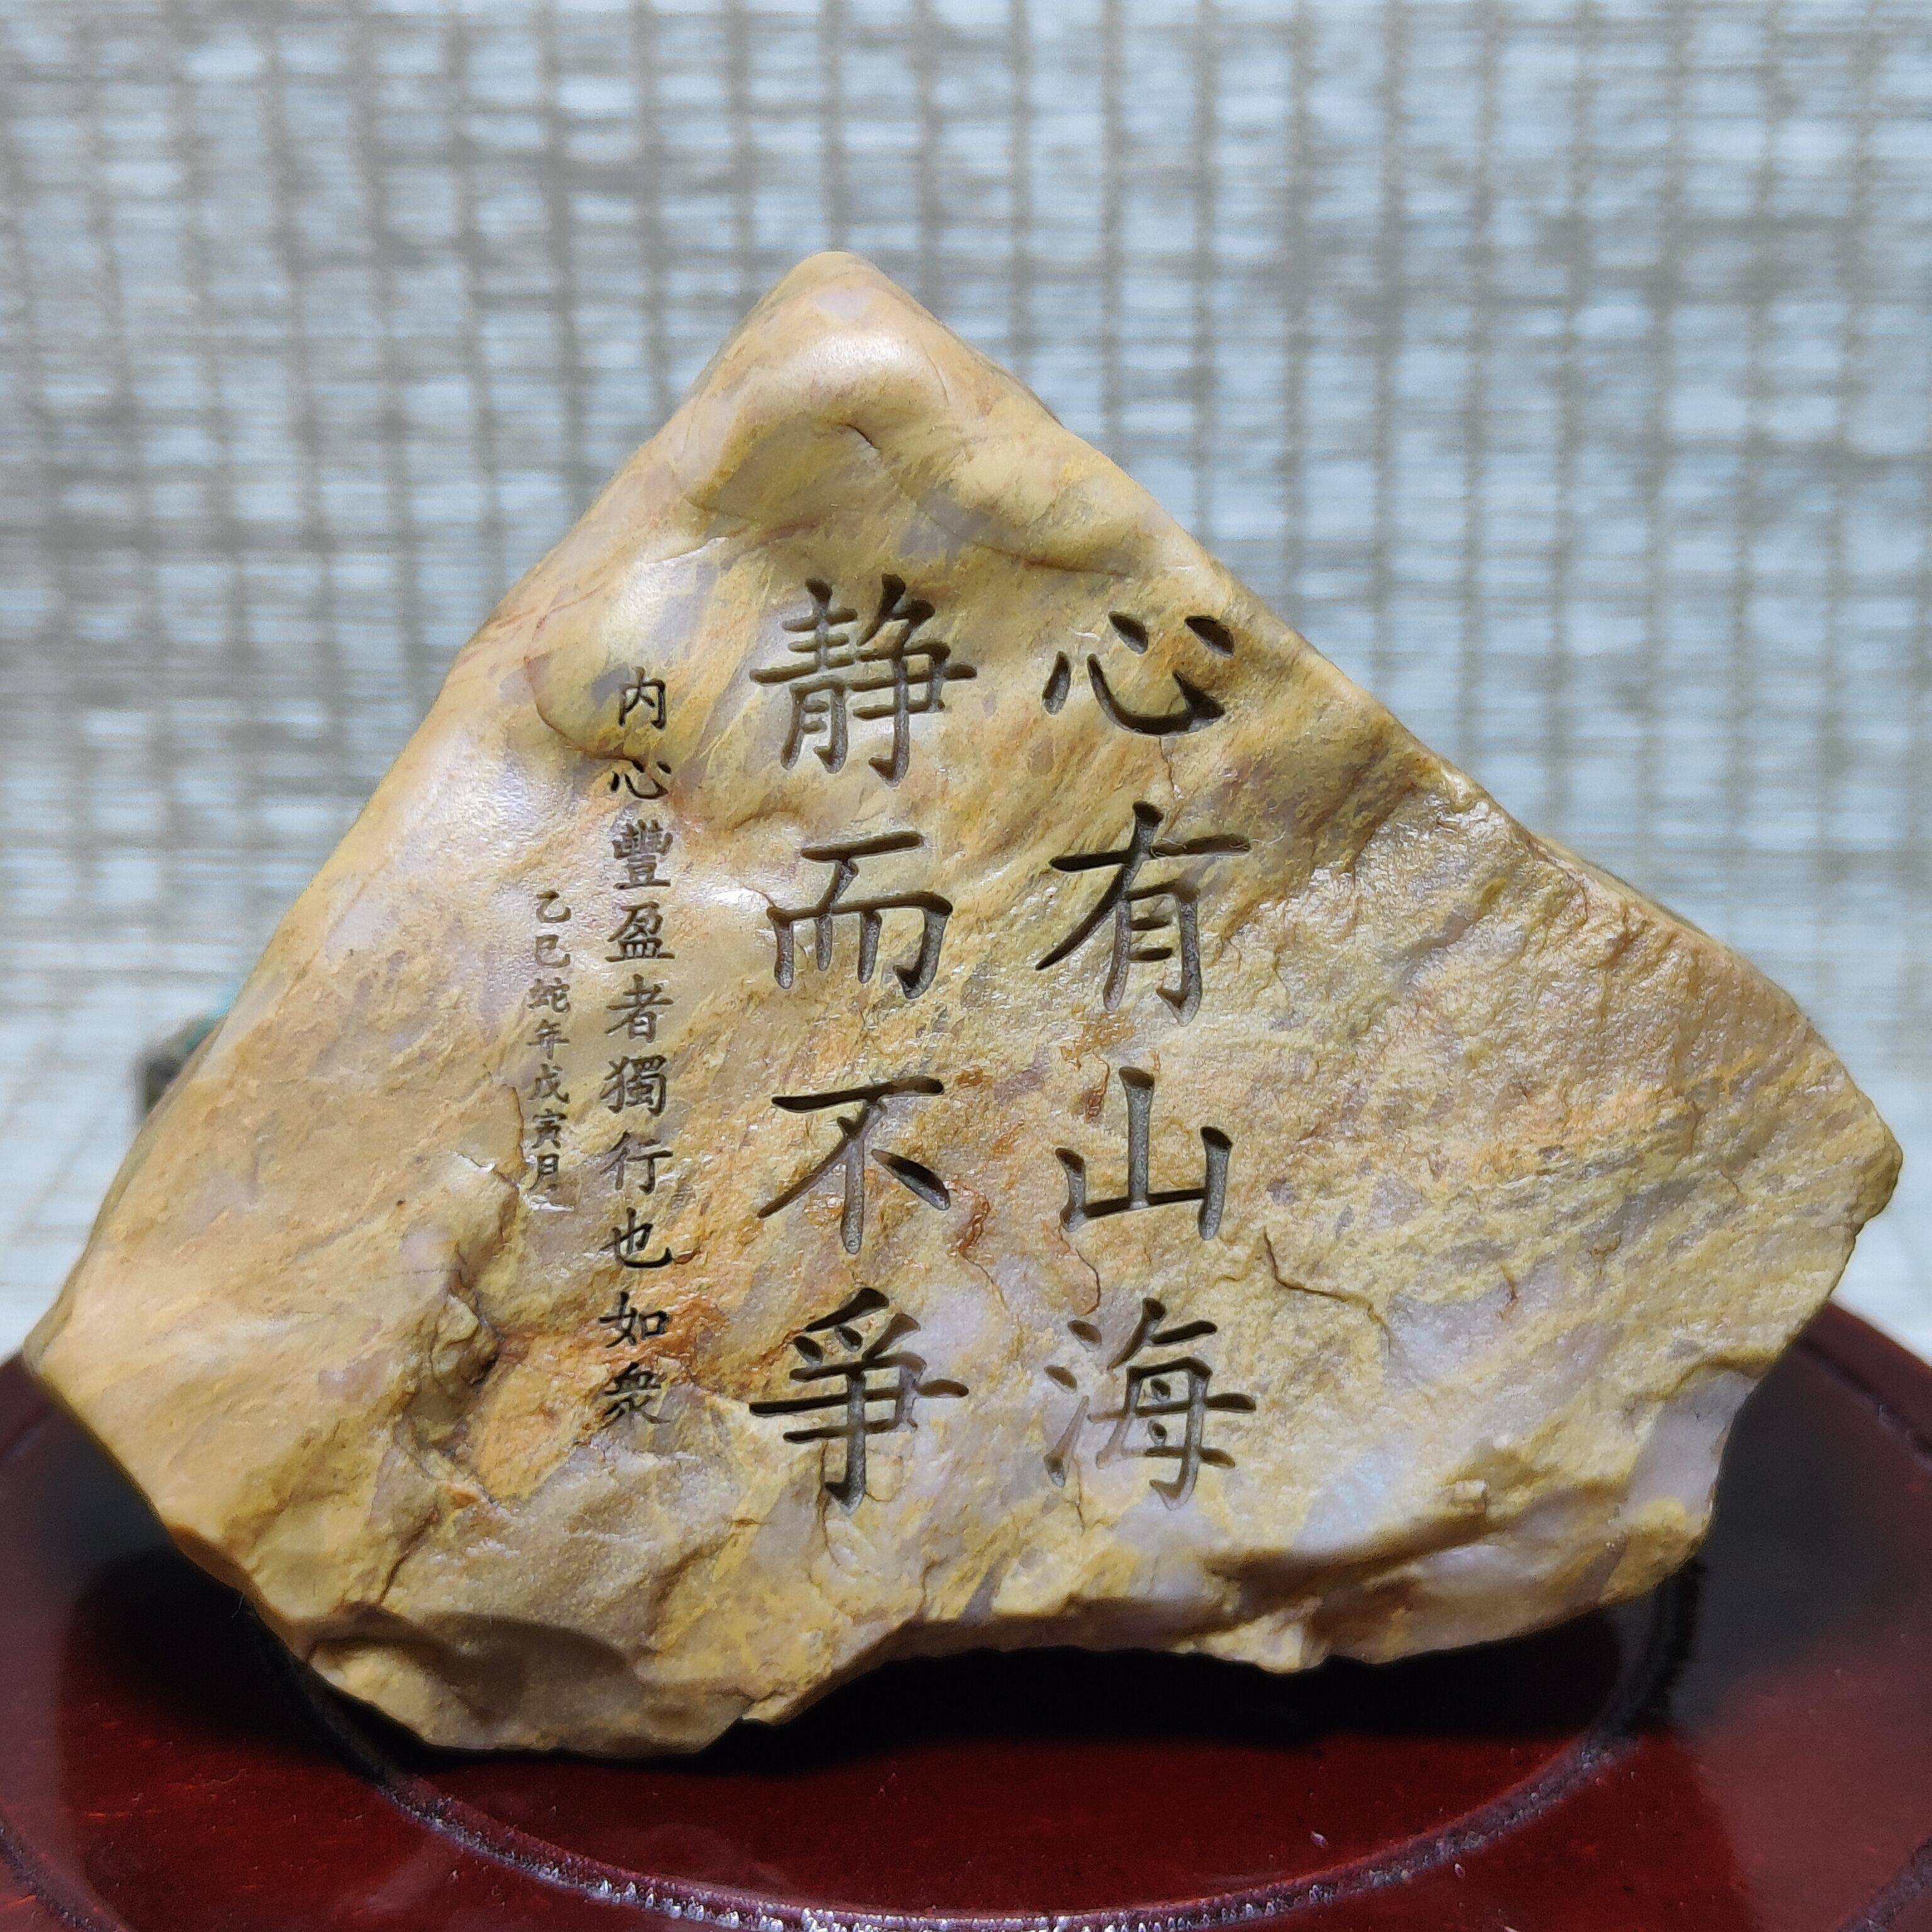 心有山海
静而不爭
内心豐盈者獨行也如衆
乙巳蛇年戊寅月